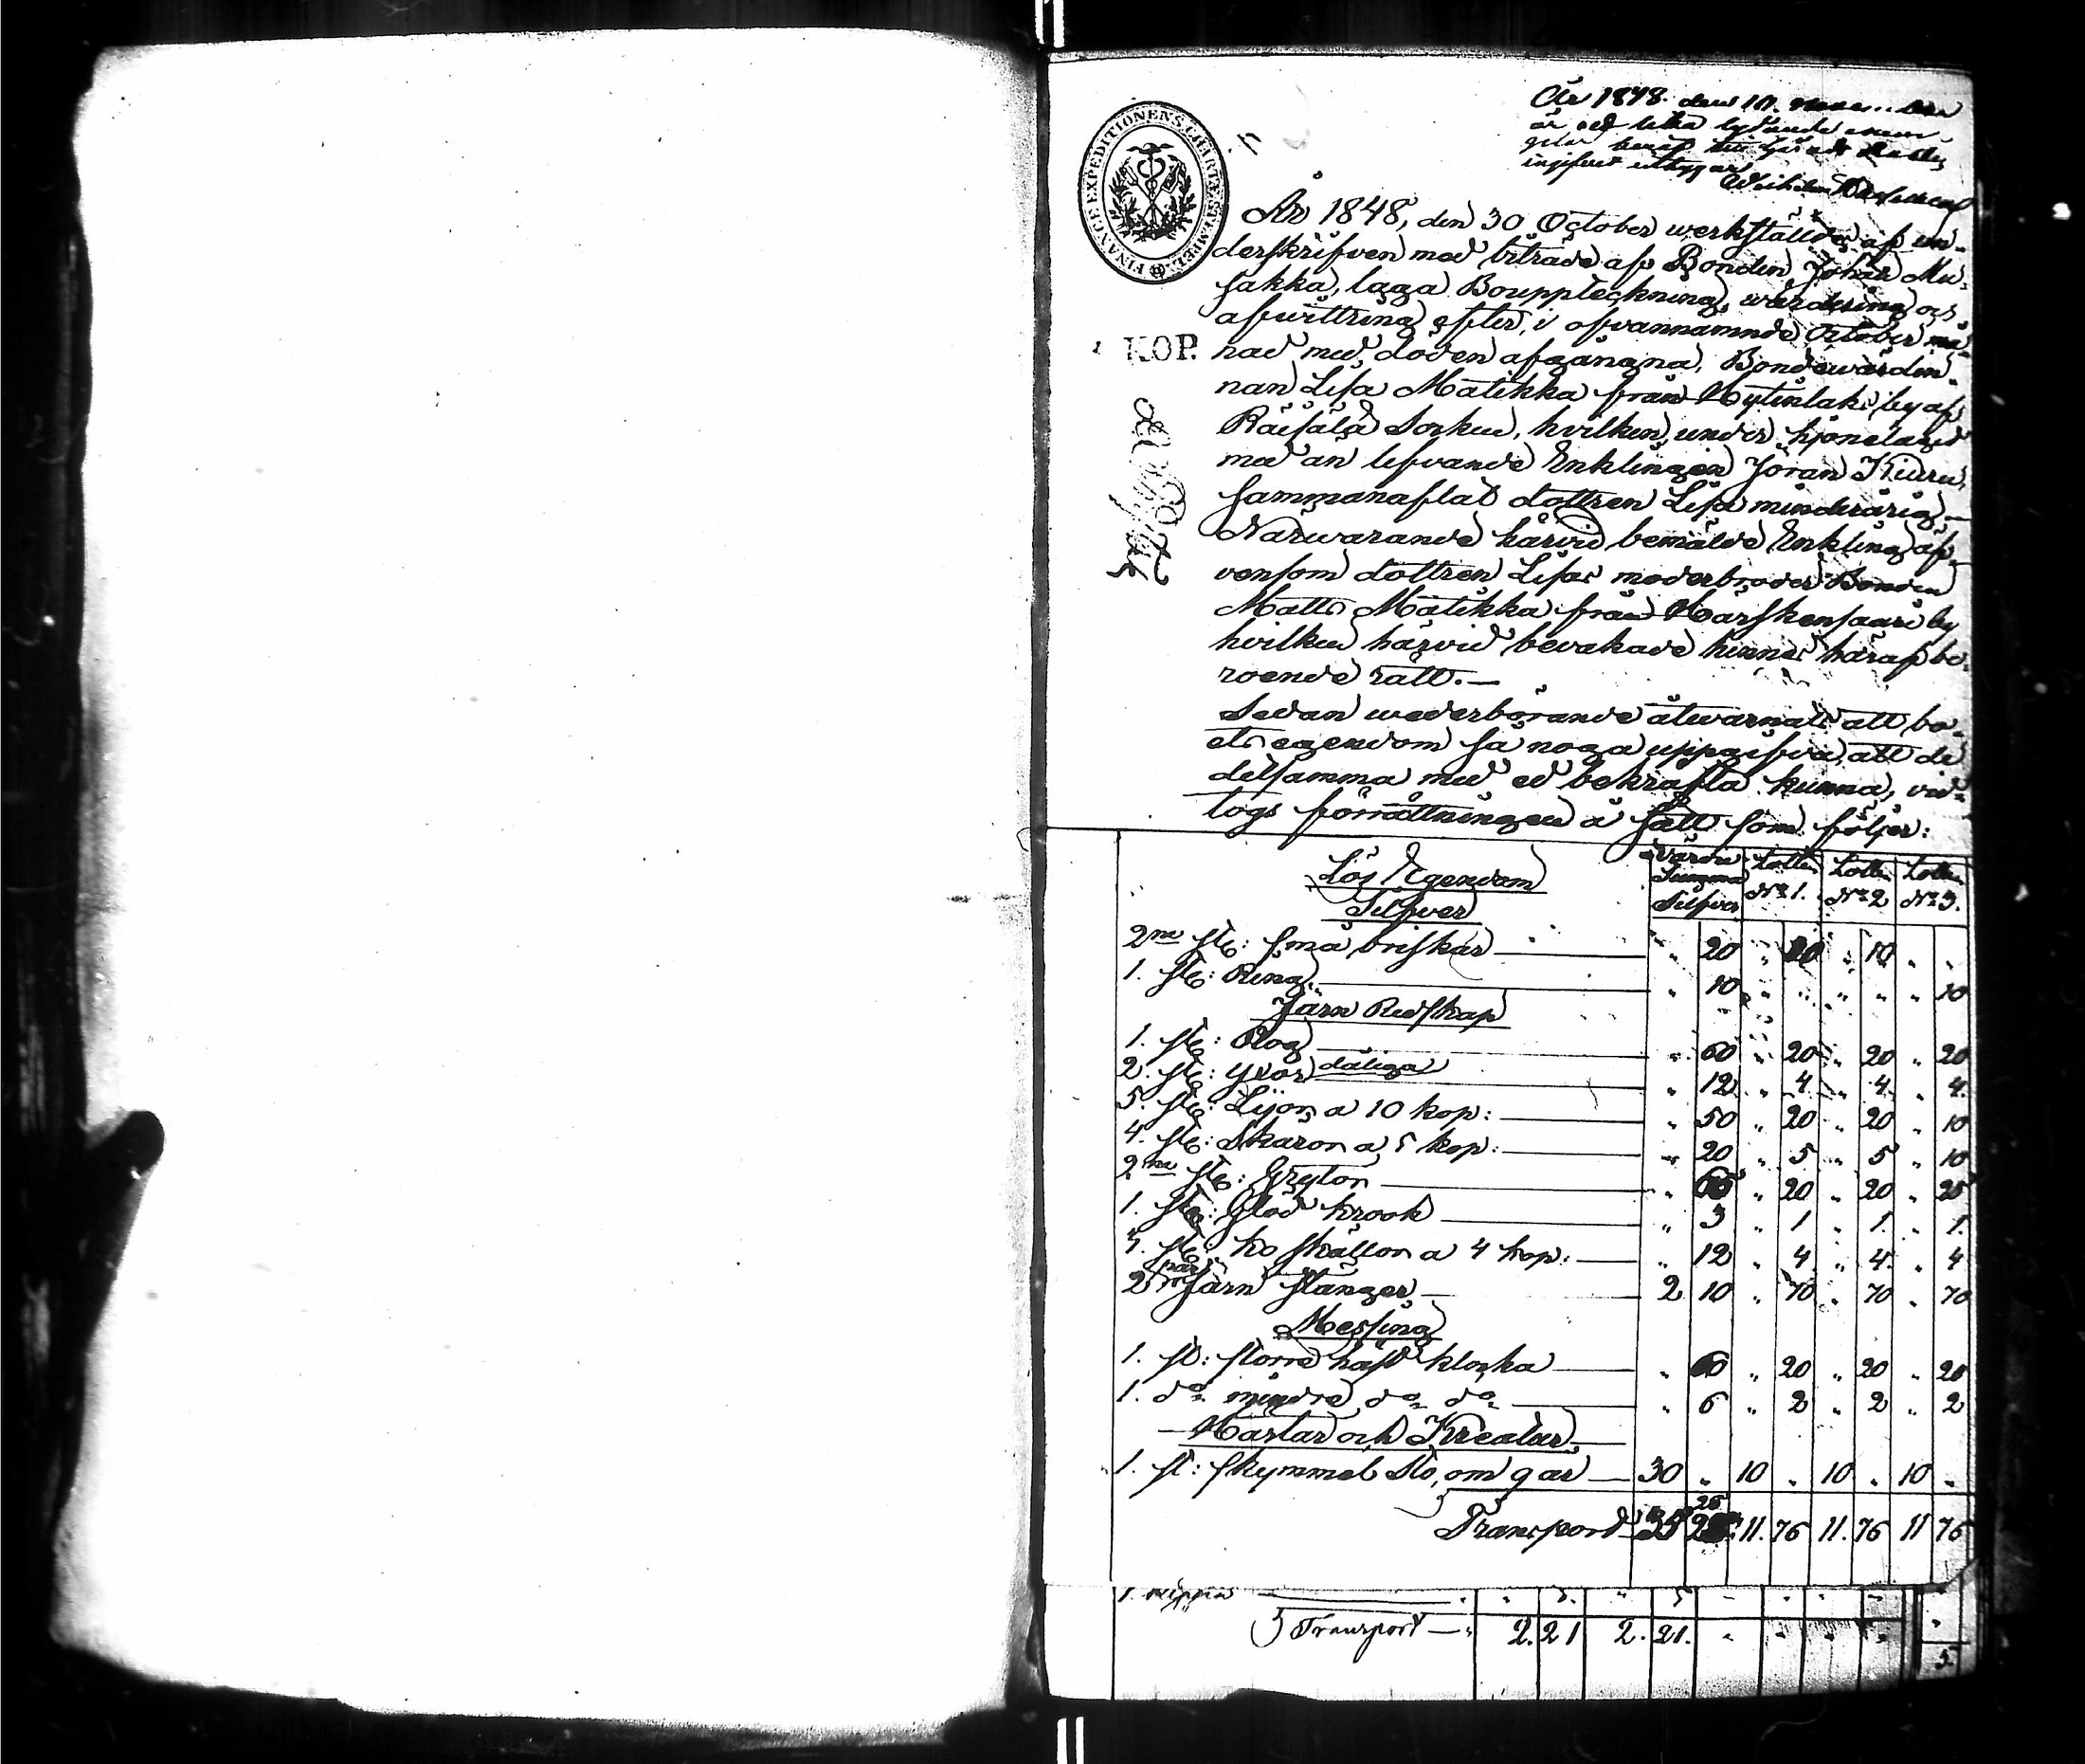 År 1848. den 10. November
är ett lika lydande exem-
plar
ingifvet intygar
FINANCE EXPEDITIONENS CHARTÆ STEMPEL
KOP.
År 1848, den 30 October werkställdes af un-
derskrifven med biträde af Bonden Johan Mu-
sakka, laga Bouppteckning, wärdering och
afwittring efter, i ofvannämnde October må-
nad med döden afgångna, Bondewärdin-
nan Lisa Matikka från Mytinlaks by af
Räisälä Socken, hvilken under hjonelaget
med än lefvande Enklingen Jöran Kiuru,
sammanaflat dottren Lisa minderårig.—
Närwarande härvid bemälde Enkling äf-
vensom dottren Lisas moderbroder Bonden
Matts Matikka från Härskensaari by
hvilken härvid bevakade hennes häraf be-
roende rätt.—
Sedan wederbörande åtwarnats att bo-
ets egendom så noga uppgifva, att de
detsamma med ed bekräfta kunna, vid-
togs förrättningen å sätt som följer:
Lös Egendom Summa Silfver Lotten N:o 1. Lotten N:o 2 Lotten N:o 3.
Silfver
2ne st: små briskor — " 20 " 10 " 10 " "
1. st: Ring — " 10 " " " " " 10
Järn Redskap
1. st: Plog — " 60 " 20 " 20 " 20
2. st: Yxor dåliga — " 12 " 4 " 4 " 4
5. st: Lijor a 10 kop: — " 50 " 20 " 20 " 10
4. st: Skäror a 5 kop: — " 20 " 5 " 5 " 10
2ne st: Grytor — " 65 " 20 " 20 " 25
1. st: Glöd krook — " 3 " 1 " 1 " 1
3. st: ko skällor a 4 kop: — " 12 " 4 " 4 " 4
2 par järn stänger — 2 10 " 70 " 70 " 70
Messing
1. st: större häst klocka — " 60 " 20 " 20 " 20
1. do mindre do do — " 6 " 2 " 2 " 2
Hästar och Kreatur
1. st: skymmel Sto, om 9 år — 30 " 10 " 10 " 10 "
Transport 35 28 11. 76 11. 76 11 76
Transport — 2. 21 2. 21.